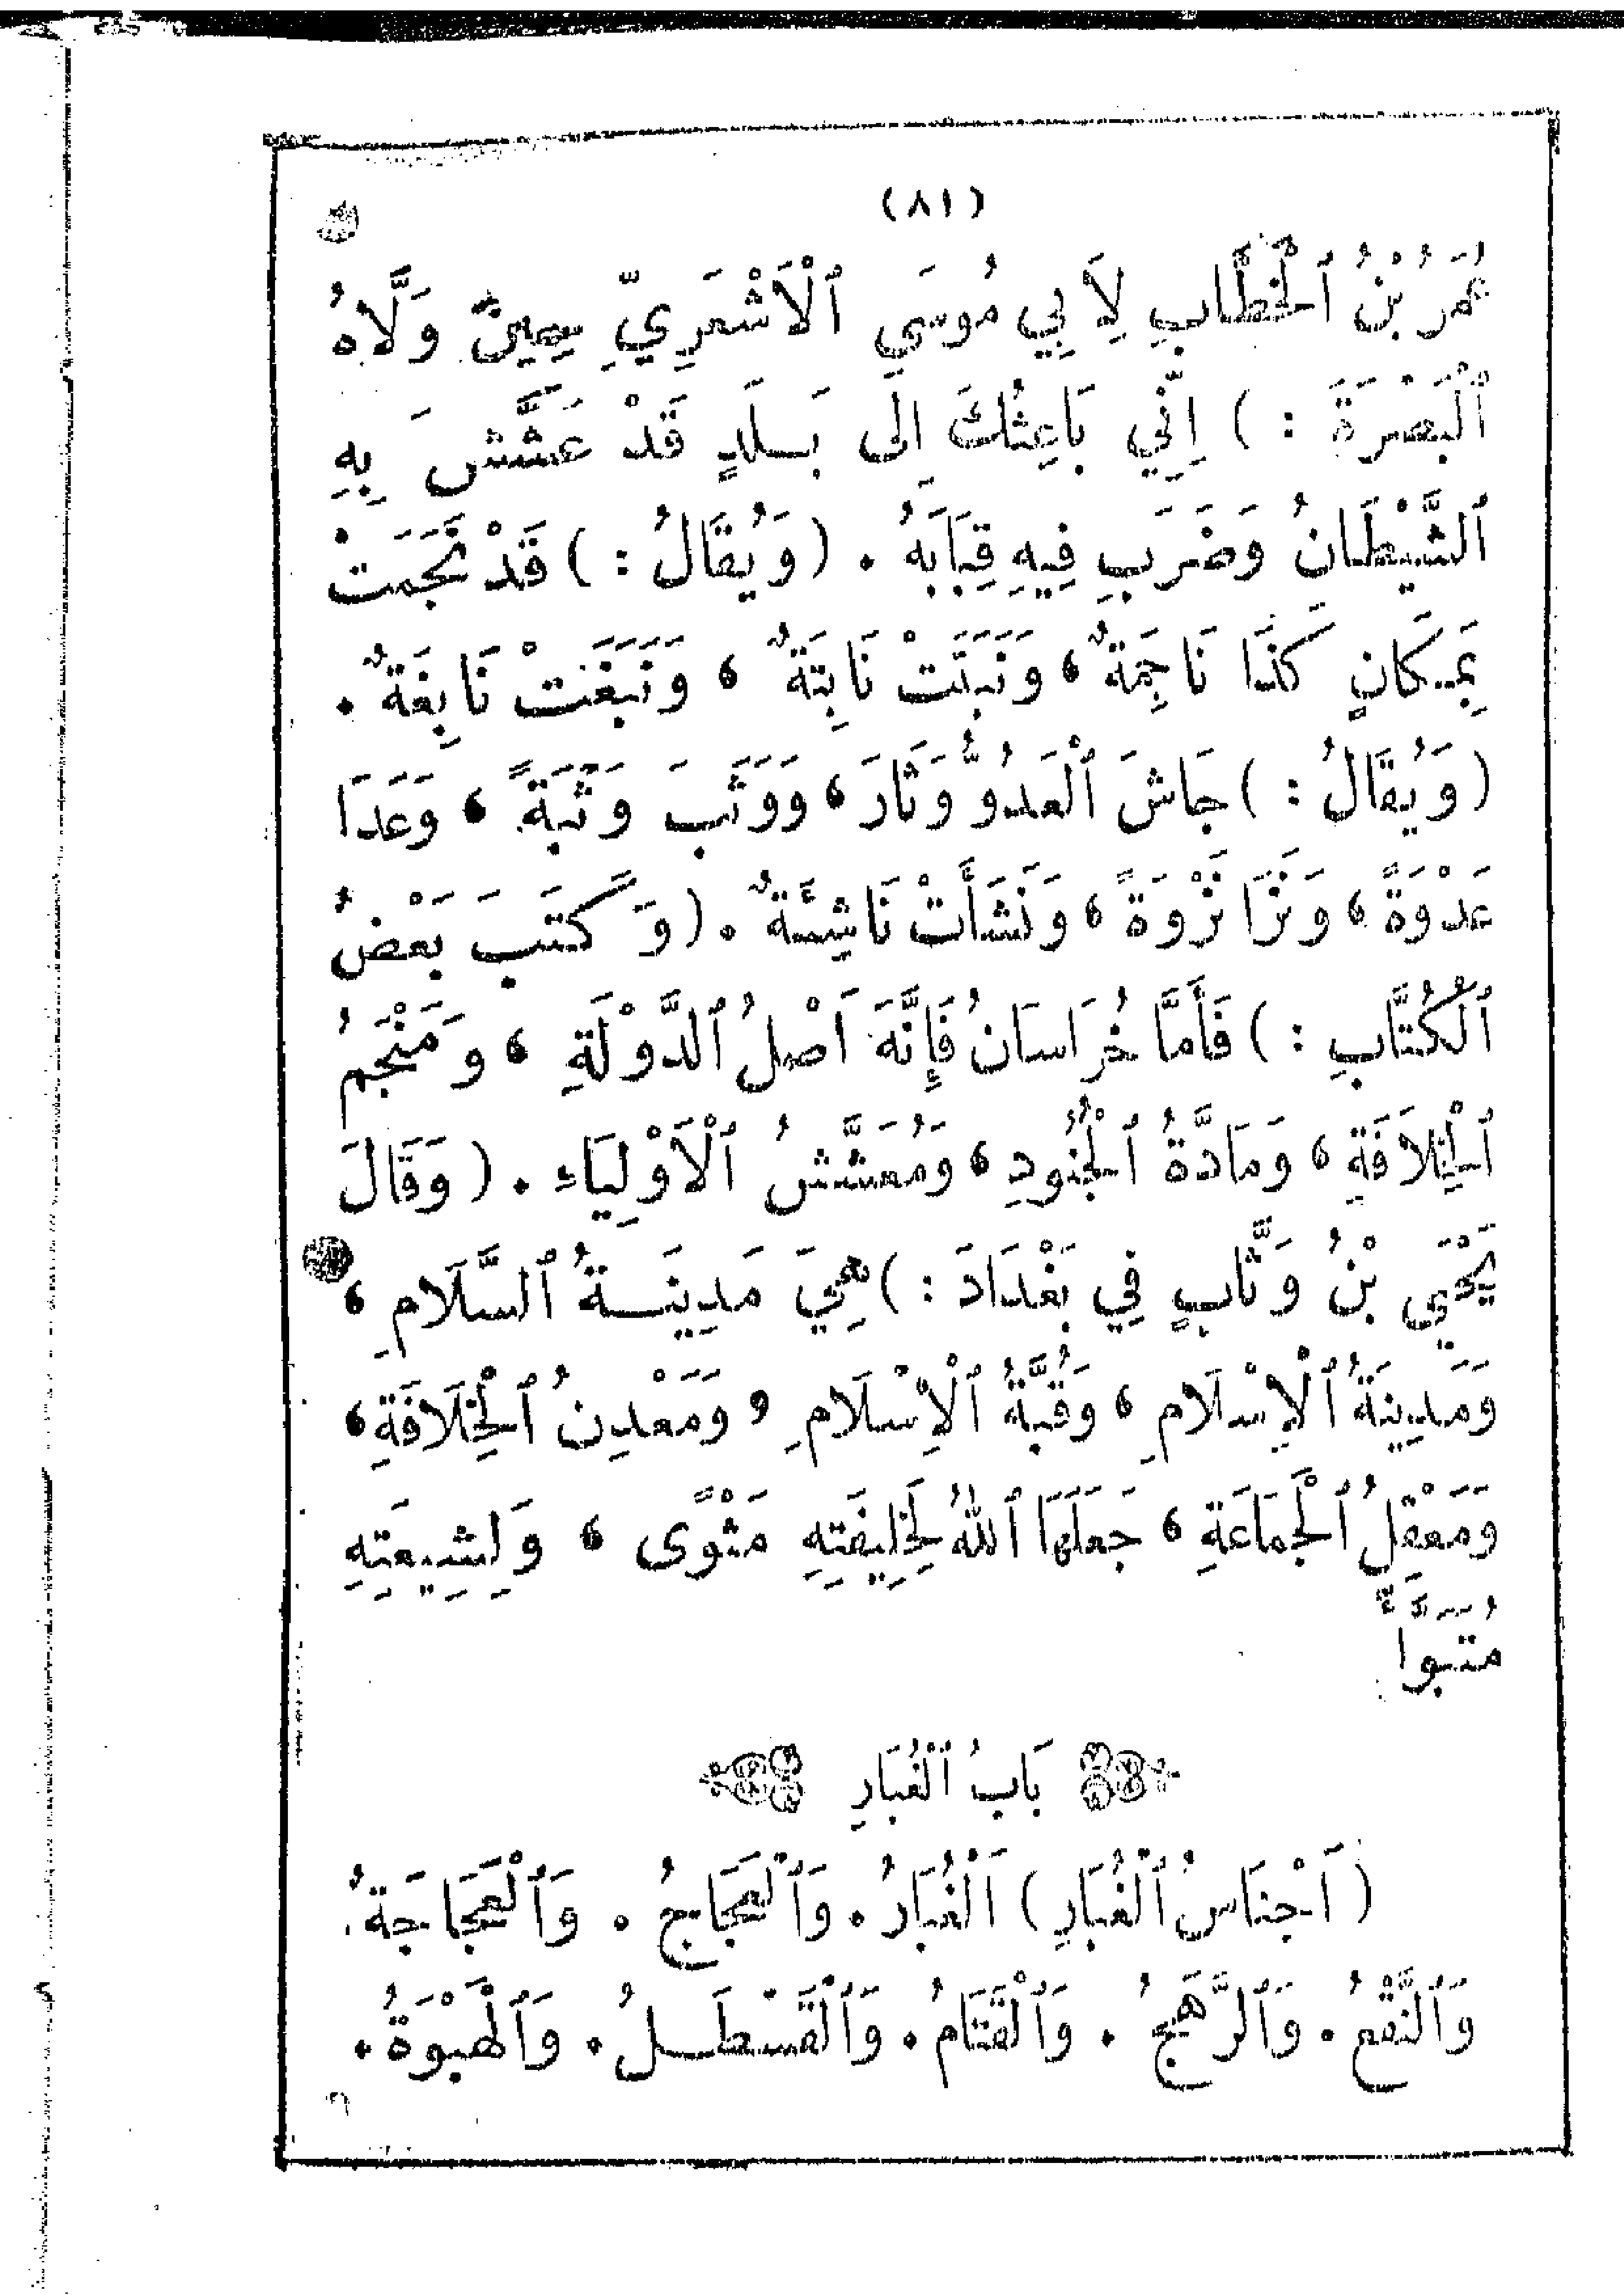 (٨١)
عُمَرُ بْنُ ٱلْخَطَّابِ لِأَبِي مُوسَى ٱلْأَشْعَرِيِّ حِينَ وَلَّاهُ
ٱلْبَصْرَةَ :) إِنِّي بَاعِثُكَ إِلَى بَلَدٍ قَدْ عَشَّشَ بِهِ
ٱلشَّيْطَانُ وَضَرَبَ فِيهِ قِبَابَهُ . (وَيُقَالُ :) قَدْ نَجَمَتْ
بِمَكَانٍ كَذَا نَاجِمَةٌ ، وَنَبَتَتْ نَابِتَةٌ ، وَنَبَغَتْ نَابِغَةٌ .
(وَيُقَالُ :) جَاشَ ٱلْعَدُوُّ وَثَارَ ، وَوَثَبَ وَثْبَةً ، وَعَدَا
عَدْوَةً ، وَنَزَا نَزْوَةً ، وَنَشَأَتْ نَاشِئَةٌ . (وَكَتَبَ بَعْضُ
ٱلْكُتَّابِ :) فَأَمَّا خُرَاسَانُ فَإِنَّهَ أَصْلُ ٱلدَّوْلَةِ ، وَمَنْجَمُ
ٱلْخِلَافَةِ ، وَمَادَّةُ ٱلْجُنُودِ ، وَمُعَشَّشُ ٱلْأَوْلِيَاءِ . (وَقَالَ
يَحْيَى بْنُ وَثَّابٍ فِي بَغْدَادَ :) هِيَ مَدِينَةُ ٱلسَّلَامِ ،
وَمَدِينَةُ ٱلْإِسْلَامِ ، وَقُبَّةُ ٱلْإِسْلَامِ ، وَمَعْدِنُ ٱلْخِلَافَةِ ،
وَمَعْقِلُ ٱلْجَمَاعَةِ ، جَعَلَهَا ٱللهُ لِخَلِيفَتِهِ مَثْوًى ، وَلِشِيعَتِهِ
مُتَبَوَّأً
بَابُ ٱلْغُبَارِ
(أَجْنَاسُ ٱلْغُبَارِ) أَلْغُبَارُ . وَٱلْعَجَاجُ . وَٱلْعَجَاجَةُ .
وَٱلنَّقْعُ . وَٱلرَّهَجُ . وَٱلْقَتَامُ . وَٱلْقَسْطَلُ . وَٱلْهَبْوَةُ .